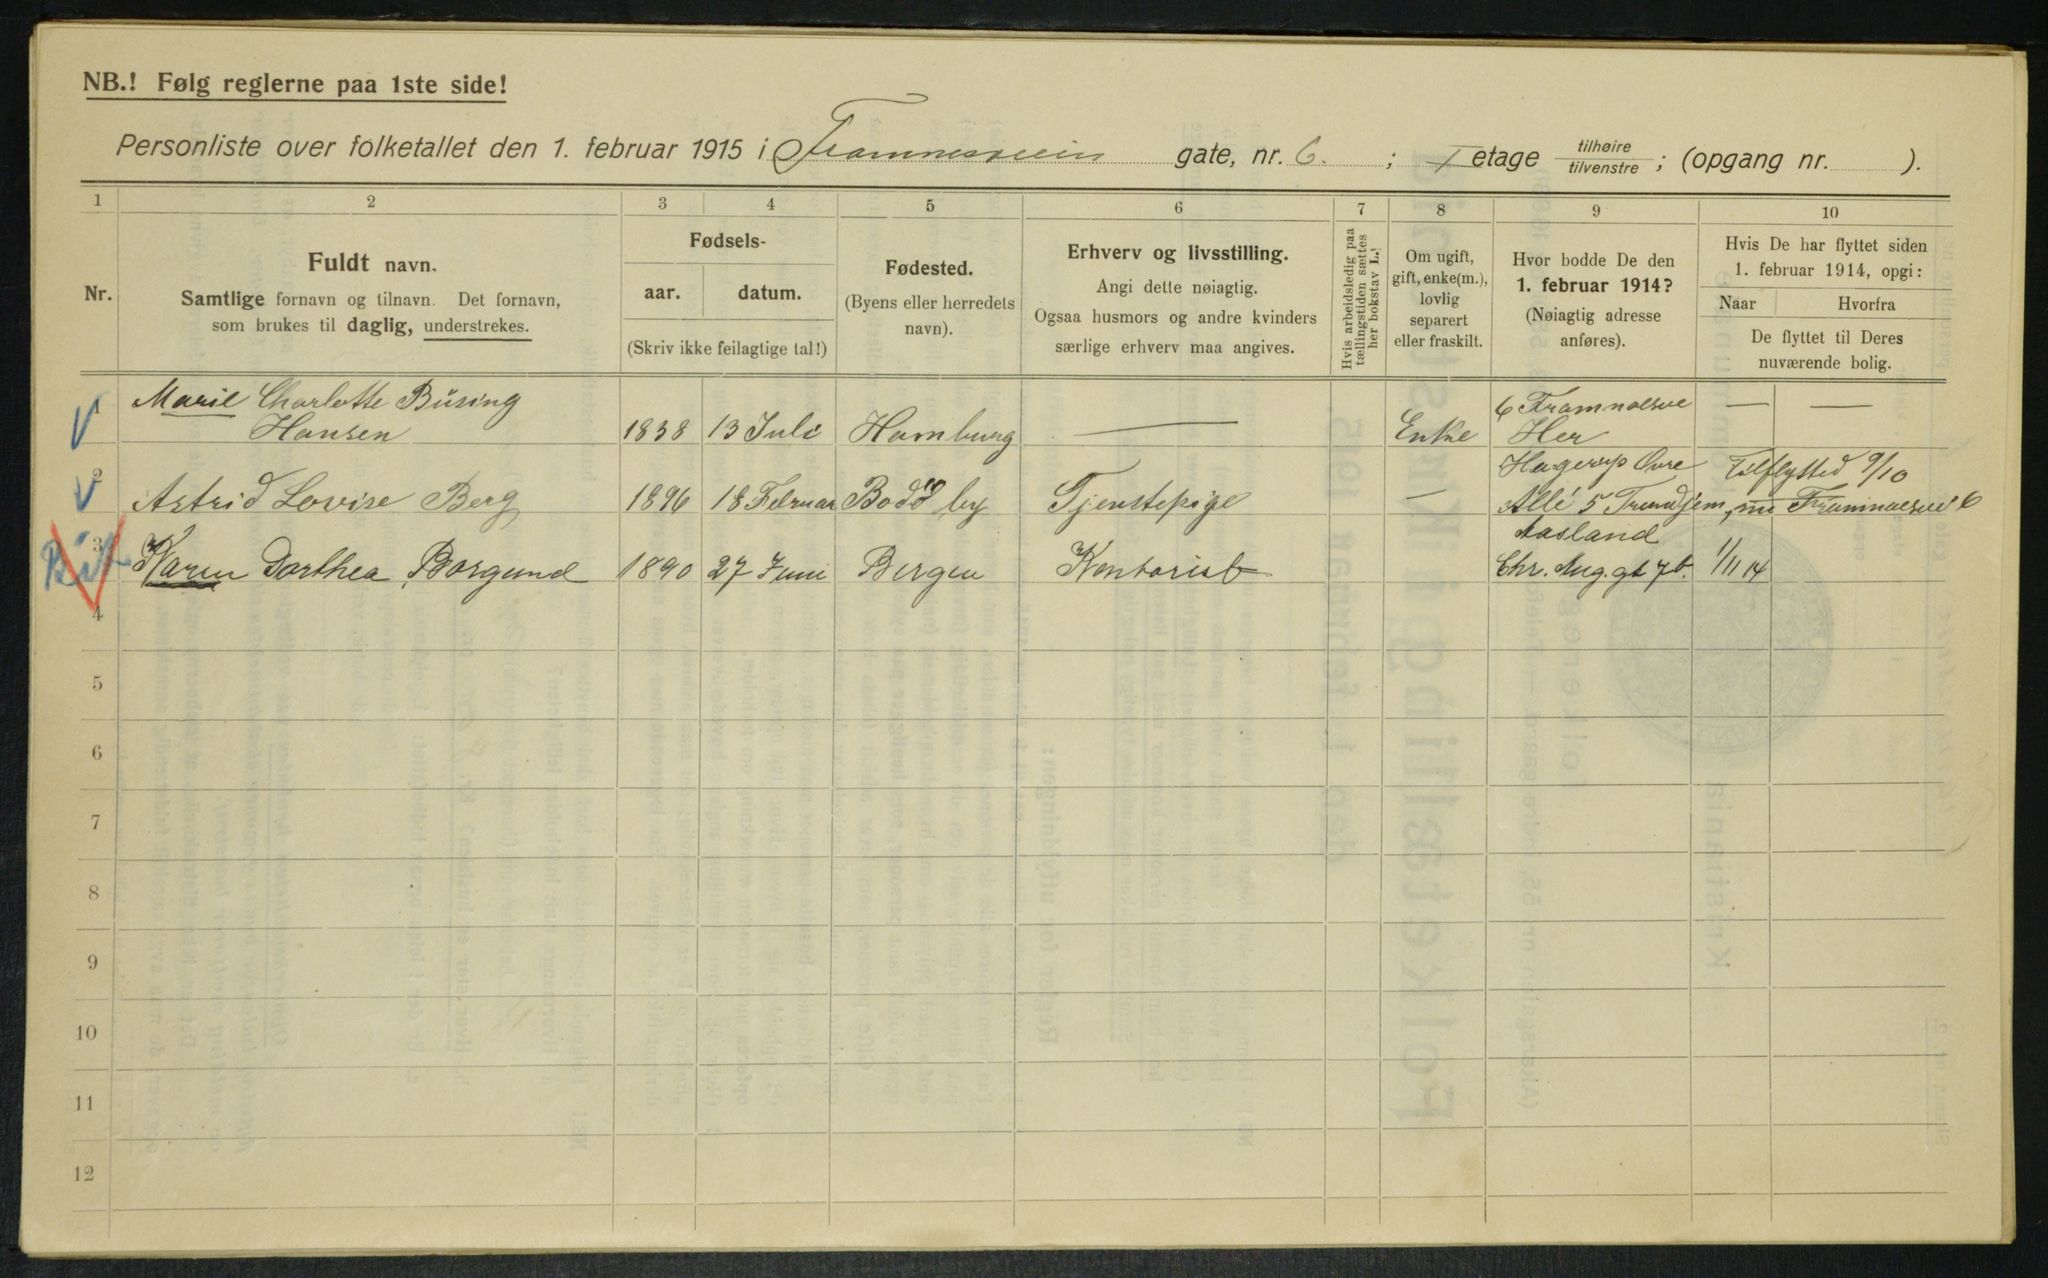 NB.! Følg reglerne paa 1ste side!
Personliste over folketallet den 1. februar 1915 i Framnesveien gate, nr. 6. ; I etage tilhøire/tilvenstre ; (opgang nr. ).
1 2 3 4 5 6 7 8 9 10
Nr.
Fuldt navn.
Samtlige fornavn og tilnavn. Det fornavn,
som brukes til daglig, understrekes.
Fødsels-
aar. datum.
(Skriv ikke feilagtige tal!)
Fødested.
(Byens eller herredets
navn).
Erhverv og livsstilling.
Angi dette nøiagtig.
Ogsaa husmors og andre kvinders
særlige erhverv maa angives.
Hvis arbeidsledig paa
tællingstiden sættes
her bokstav L.!
Om ugift,
gift, enke(m.),
lovlig
separert
eller fraskilt.
Hvor bodde De den
1. februar 1914?
(Nøiagtig adresse
anføres).
Hvis De har flyttet siden
1. februar 1914, opgi:
Naar Hvorfra
De flyttet til Deres
nuværende bolig.
1 Marie Charlotte Büsing 6 Framnaesve — —
Hansen 1838 13 Juli Hamburg — Enke Her
2 Hagerup Øvre Tilflytted 9/10
Astrid Lovise Berg 1896 18 Februar Bodø by Tjenstepige — Allé 5 Trundjem, Framnaesvei 6
3 Aasland
Karen Dorthea Borgund 1890 27 Juni Bergen Kontorist Chr. Aug. gt 7b. 1/11 14
4
5
6
7
8
9
10
11
12